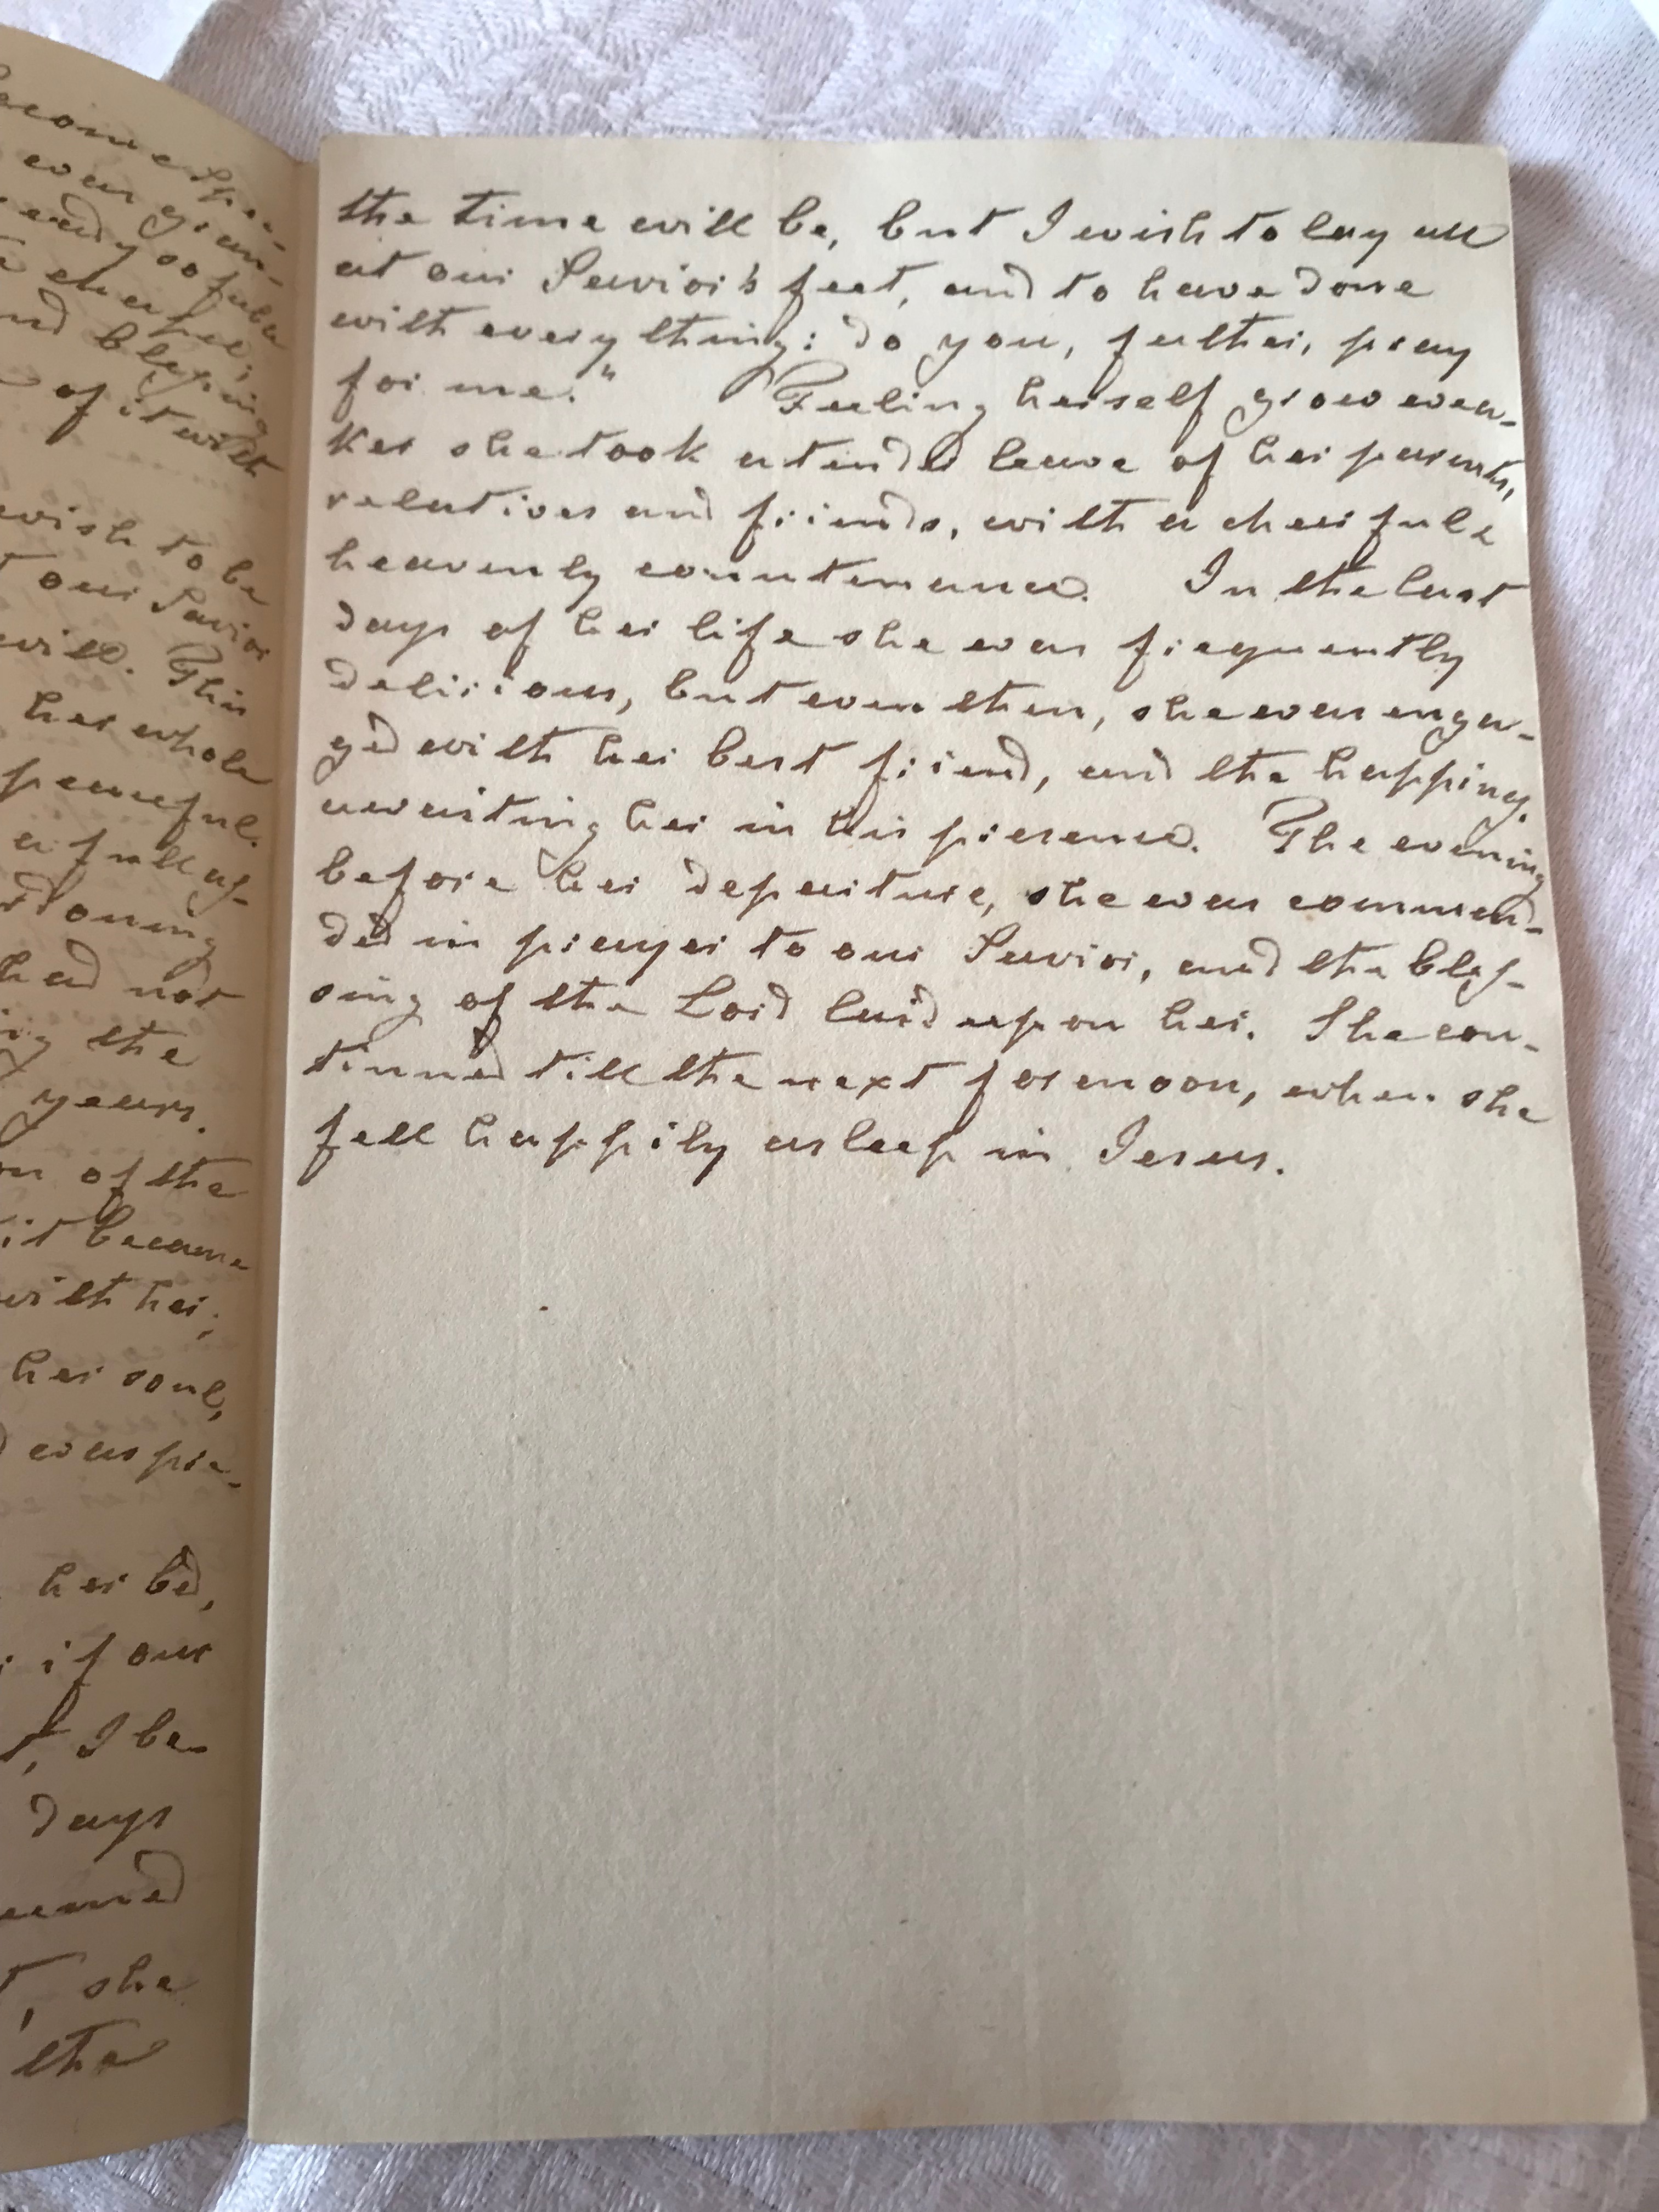 become spe-
even
ready to
chapel;
and blessing
of it with
wish to be
our Savior
will. This
her whole
peaceful.
a full as-
doning
had not
the
years.
on of the
it became
with her,
her soul,
was pre-
her bed,
if our
I be-
days
she
the
the time will be, but I wish to lay all
at our Savior's feet, and to have done
with every thing: do you, father, pray
for me." Feeling herself grow wea-
ker she took a tender leave of her parents,
relatives and friends, with a cheerfull
heavenly countenance. In the last
days of her life she was frequently
delirious, but even then, she was enga-
ged with her best friend, and the happiness
awaiting her in his presence. The evening
before her departure, she was commen-
ded in prayer to our Savior, and the bles-
sing of the Lord laid upon her. She con-
tinued till the next forenoon, when she
fell happily asleep in Jesus.